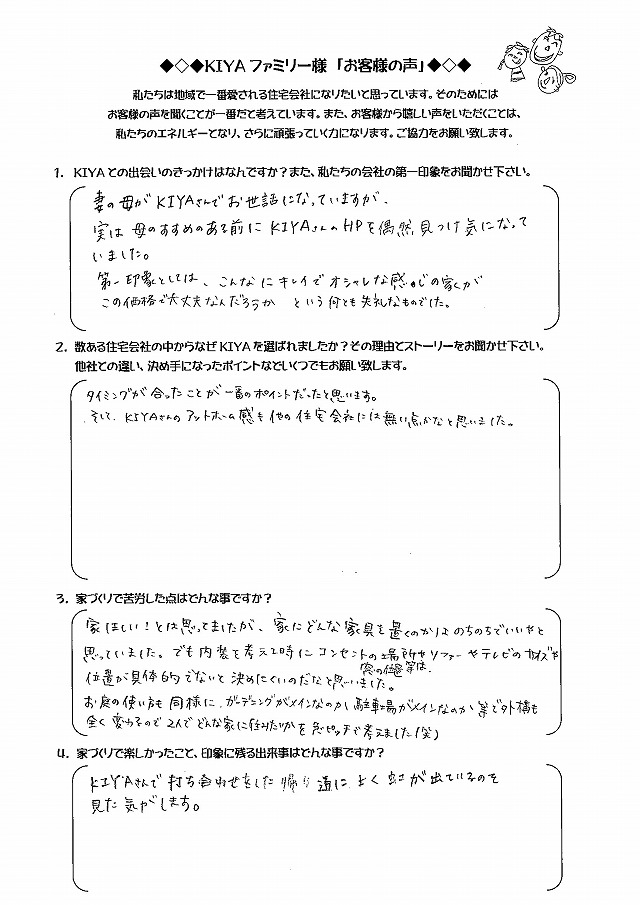 ◆◇◆KIYAファミリー様「お客様の声」◆◇◆
私たちは地域で一番愛される住宅会社になりたいと思っています。そのためには
お客様の声を聞くことが一番だと考えています。また、お客様から嬉しい声をいただくことは、
私たちのエネルギーとなり、さらに頑張っていく力になります。ご協力をお願い致します。
1. KIYAとの出会いのきっかけはなんですか?また、私たちの会社の第一印象をお聞かせ下さい。
妻の母がKIYAさんでお世話になっていますが、
実は母のすすめのある前にKIYAさんのHPを偶然見つけ気になって
いました。
第一印象としては、こんなにキレイでオシャレな感じの家が
この価格で大丈夫なんだろうか という何とも失礼なものでした。
2. 数ある住宅会社の中からなぜKIYAを選ばれましたか?その理由とストーリーをお聞かせ下さい。
他社との違い、決め手になったポイントなどいくつでもお願い致します。
タイミングが合ったことが一番のポイントだったと思います。
そして、KIYAさんのアットホーム感も他の住宅会社には無い点かなと思いました。
3. 家づくりで苦労した点はどんな事ですか?
家ほしい!とは思ってましたが、家にどんな家具を置くのかはのちのちでいいやと
思っていました。でも内装を考える時にコンセントの場所やソファーやテレビのサイズや
窓の位置等は、
位置が具体的でないと決めにくいのだなと思いました。
お庭の使い方も同様に、ガーデニングがメインなのか駐車場がメインなのか等で外構も
全く変わるので2人でどんな家に住みたいかを急ピッチで考えました(笑)
4. 家づくりで楽しかったこと、印象に残る出来事はどんな事ですか?
KIYAさんで打ち合わせをした帰り道によく虹が出ているのを
見た気がします。